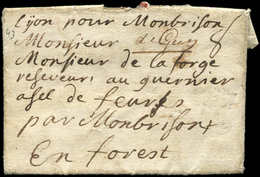 Lyon pour Monbrison
43 Monsieur
Monsieur de la forge
reseveur au guernier
a sel de feurs
par Monbrison
En forest